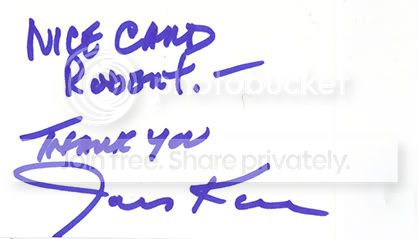 NICE CARD
ROBERT. —
photobucket
THANK YOU
Join free. Share privately.